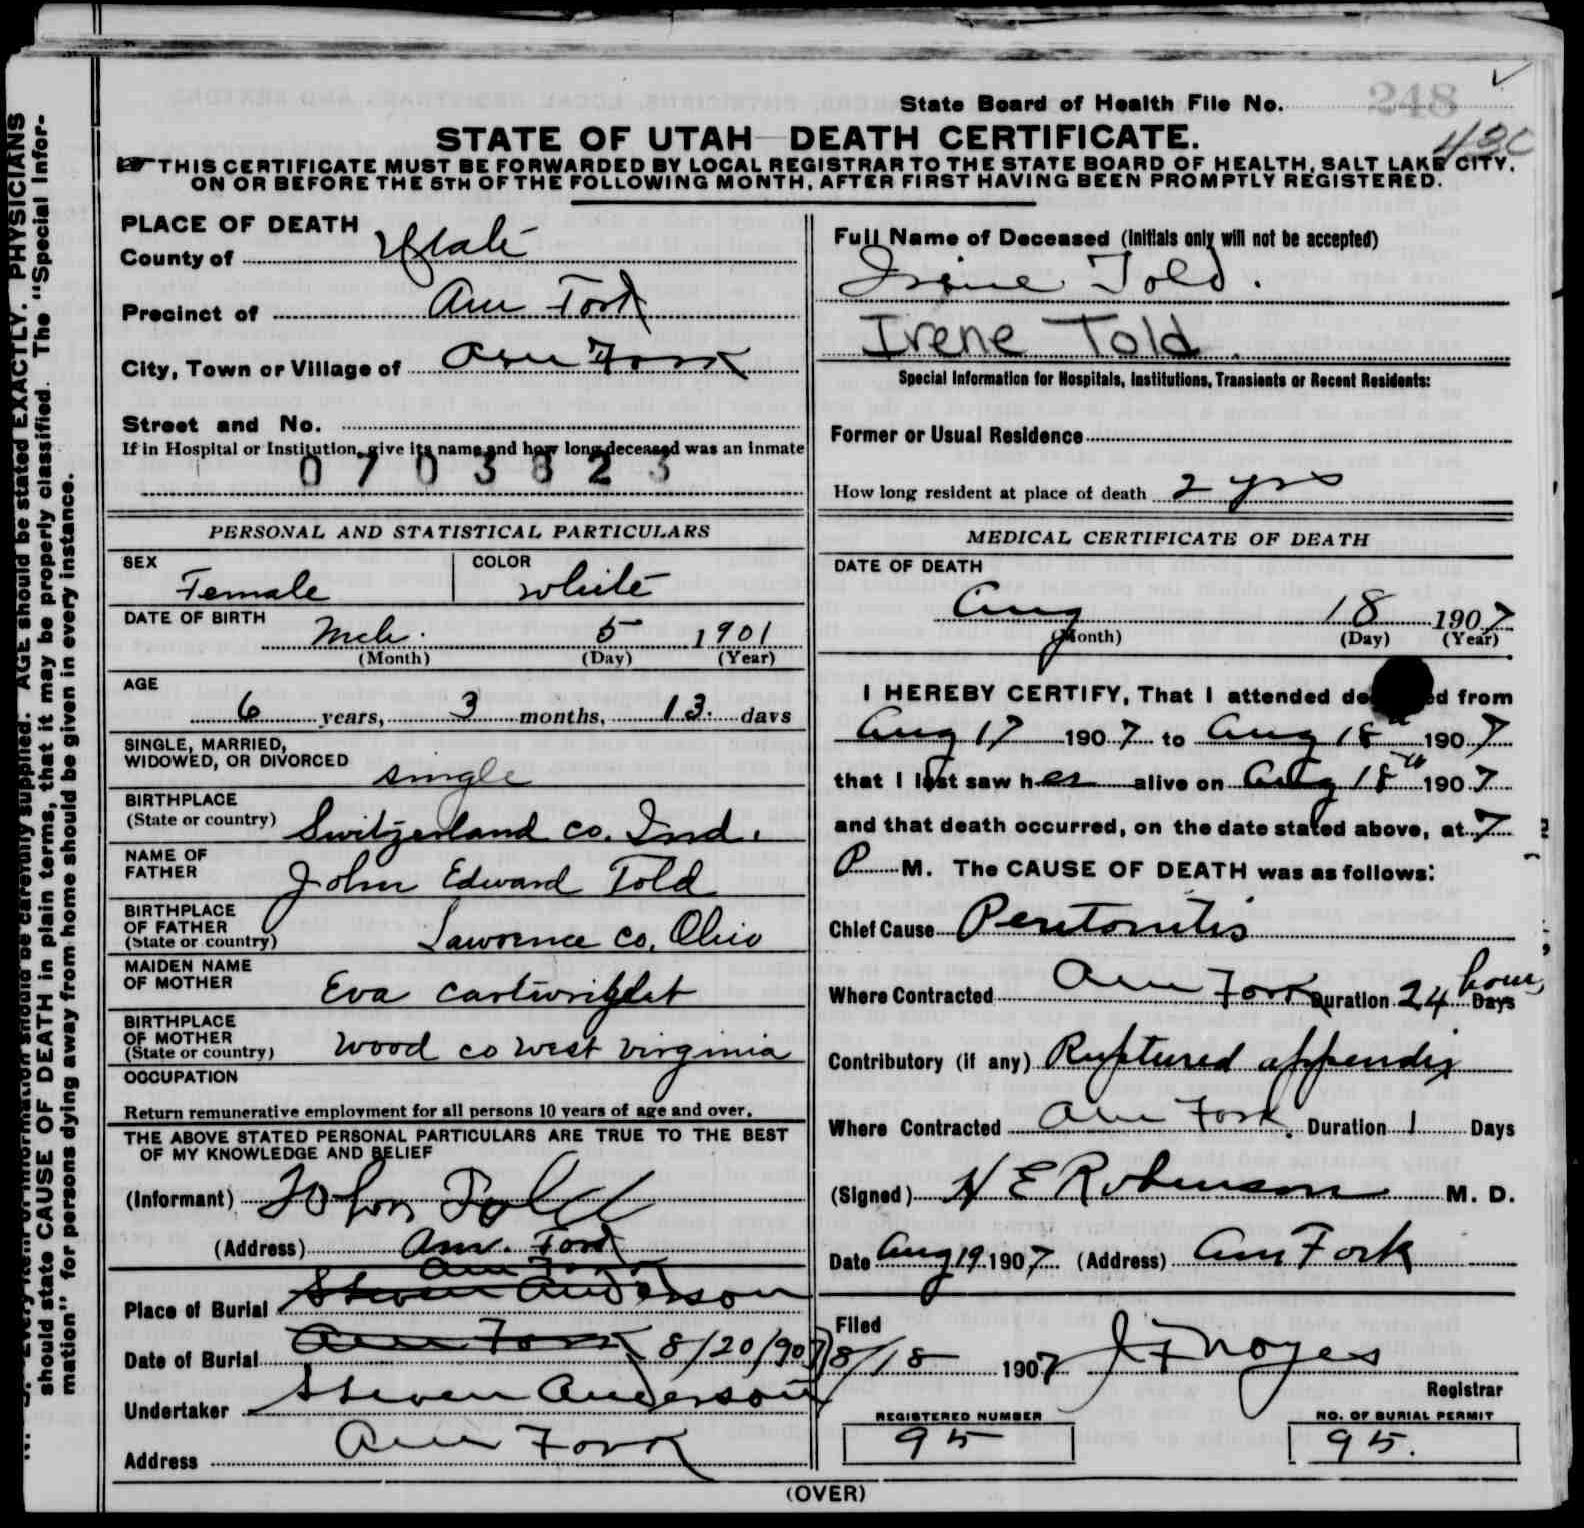 State Board of Health File No. 248
STATE OF UTAH DEATH CERTIFICATE.
THIS CERTIFICATE MUST BE FORWARDED BY LOCAL REGISTRAR TO THE STATE BOARD OF HEALTH, SALT LAKE CITY,
ON OR BEFORE THE 5TH OF THE FOLLOWING MONTH, AFTER FIRST HAVING BEEN PROMPTLY REGISTERED.
PLACE OF DEATH
County of Utah
Precinct of Am Fork
City, Town or Village of Am Fork
Street and No.
If in Hospital or Institution, give its name and how long deceased was an inmate
0703823
PERSONAL AND STATISTICAL PARTICULARS
SEX Female COLOR White
DATE OF BIRTH Mch. 5 1901
(Month) (Day) (Year)
AGE
6 years, 3 months, 13 days
SINGLE, MARRIED,
WIDOWED, OR DIVORCED single
BIRTHPLACE
(State or country) Switzerland co. Ind.
NAME OF
FATHER John Edward Told
BIRTHPLACE
OF FATHER
(State or country) Lawrence co. Ohio
MAIDEN NAME
OF MOTHER Eva Cartwright
BIRTHPLACE
OF MOTHER
(State or country) Wood co West Virginia
OCCUPATION
Return remunerative employment for all persons 10 years of age and over.
THE ABOVE STATED PERSONAL PARTICULARS ARE TRUE TO THE BEST
OF MY KNOWLEDGE AND BELIEF
(Informant) John Told
(Address) Am. Fork
Am Fork
Place of Burial Steven Anderson
Am Fork
Date of Burial 8/20/907
Undertaker Steven Anderson
Address Am Fork
Full Name of Deceased (Initials only will not be accepted)
Irene Told.
Irene Told.
Special Information for Hospitals, Institutions, Transients or Recent Residents:
Former or Usual Residence
How long resident at place of death 2 yrs
MEDICAL CERTIFICATE OF DEATH
DATE OF DEATH
Aug 18 1907
(Month) (Day) (Year)
I HEREBY CERTIFY, That I attended de ed from
Aug 17 1907 to Aug 18th 1907
that I last saw her alive on Aug 18th 1907
and that death occurred, on the date stated above, at 7
P M. The CAUSE OF DEATH was as follows:
Chief Cause Peritonitis
Where Contracted Am Fork Duration 24 hours Days
Contributory (if any) Ruptured appendix
Where Contracted Am Fork. Duration 1 Days
(Signed) H E Robinson M. D.
Date Aug 19 1907 (Address) Am Fork
Filed
8/18 1907 J F Noyes
Registrar
REGISTERED NUMBER
95
NO. OF BURIAL PERMIT
95.
(OVER)
Every item of information should be carefully supplied. AGE should be stated EXACTLY. PHYSICIANS
should state CAUSE OF DEATH in plain terms, that it may be properly classified. The "Special Infor-
mation" for persons dying away from home should be given in every instance.